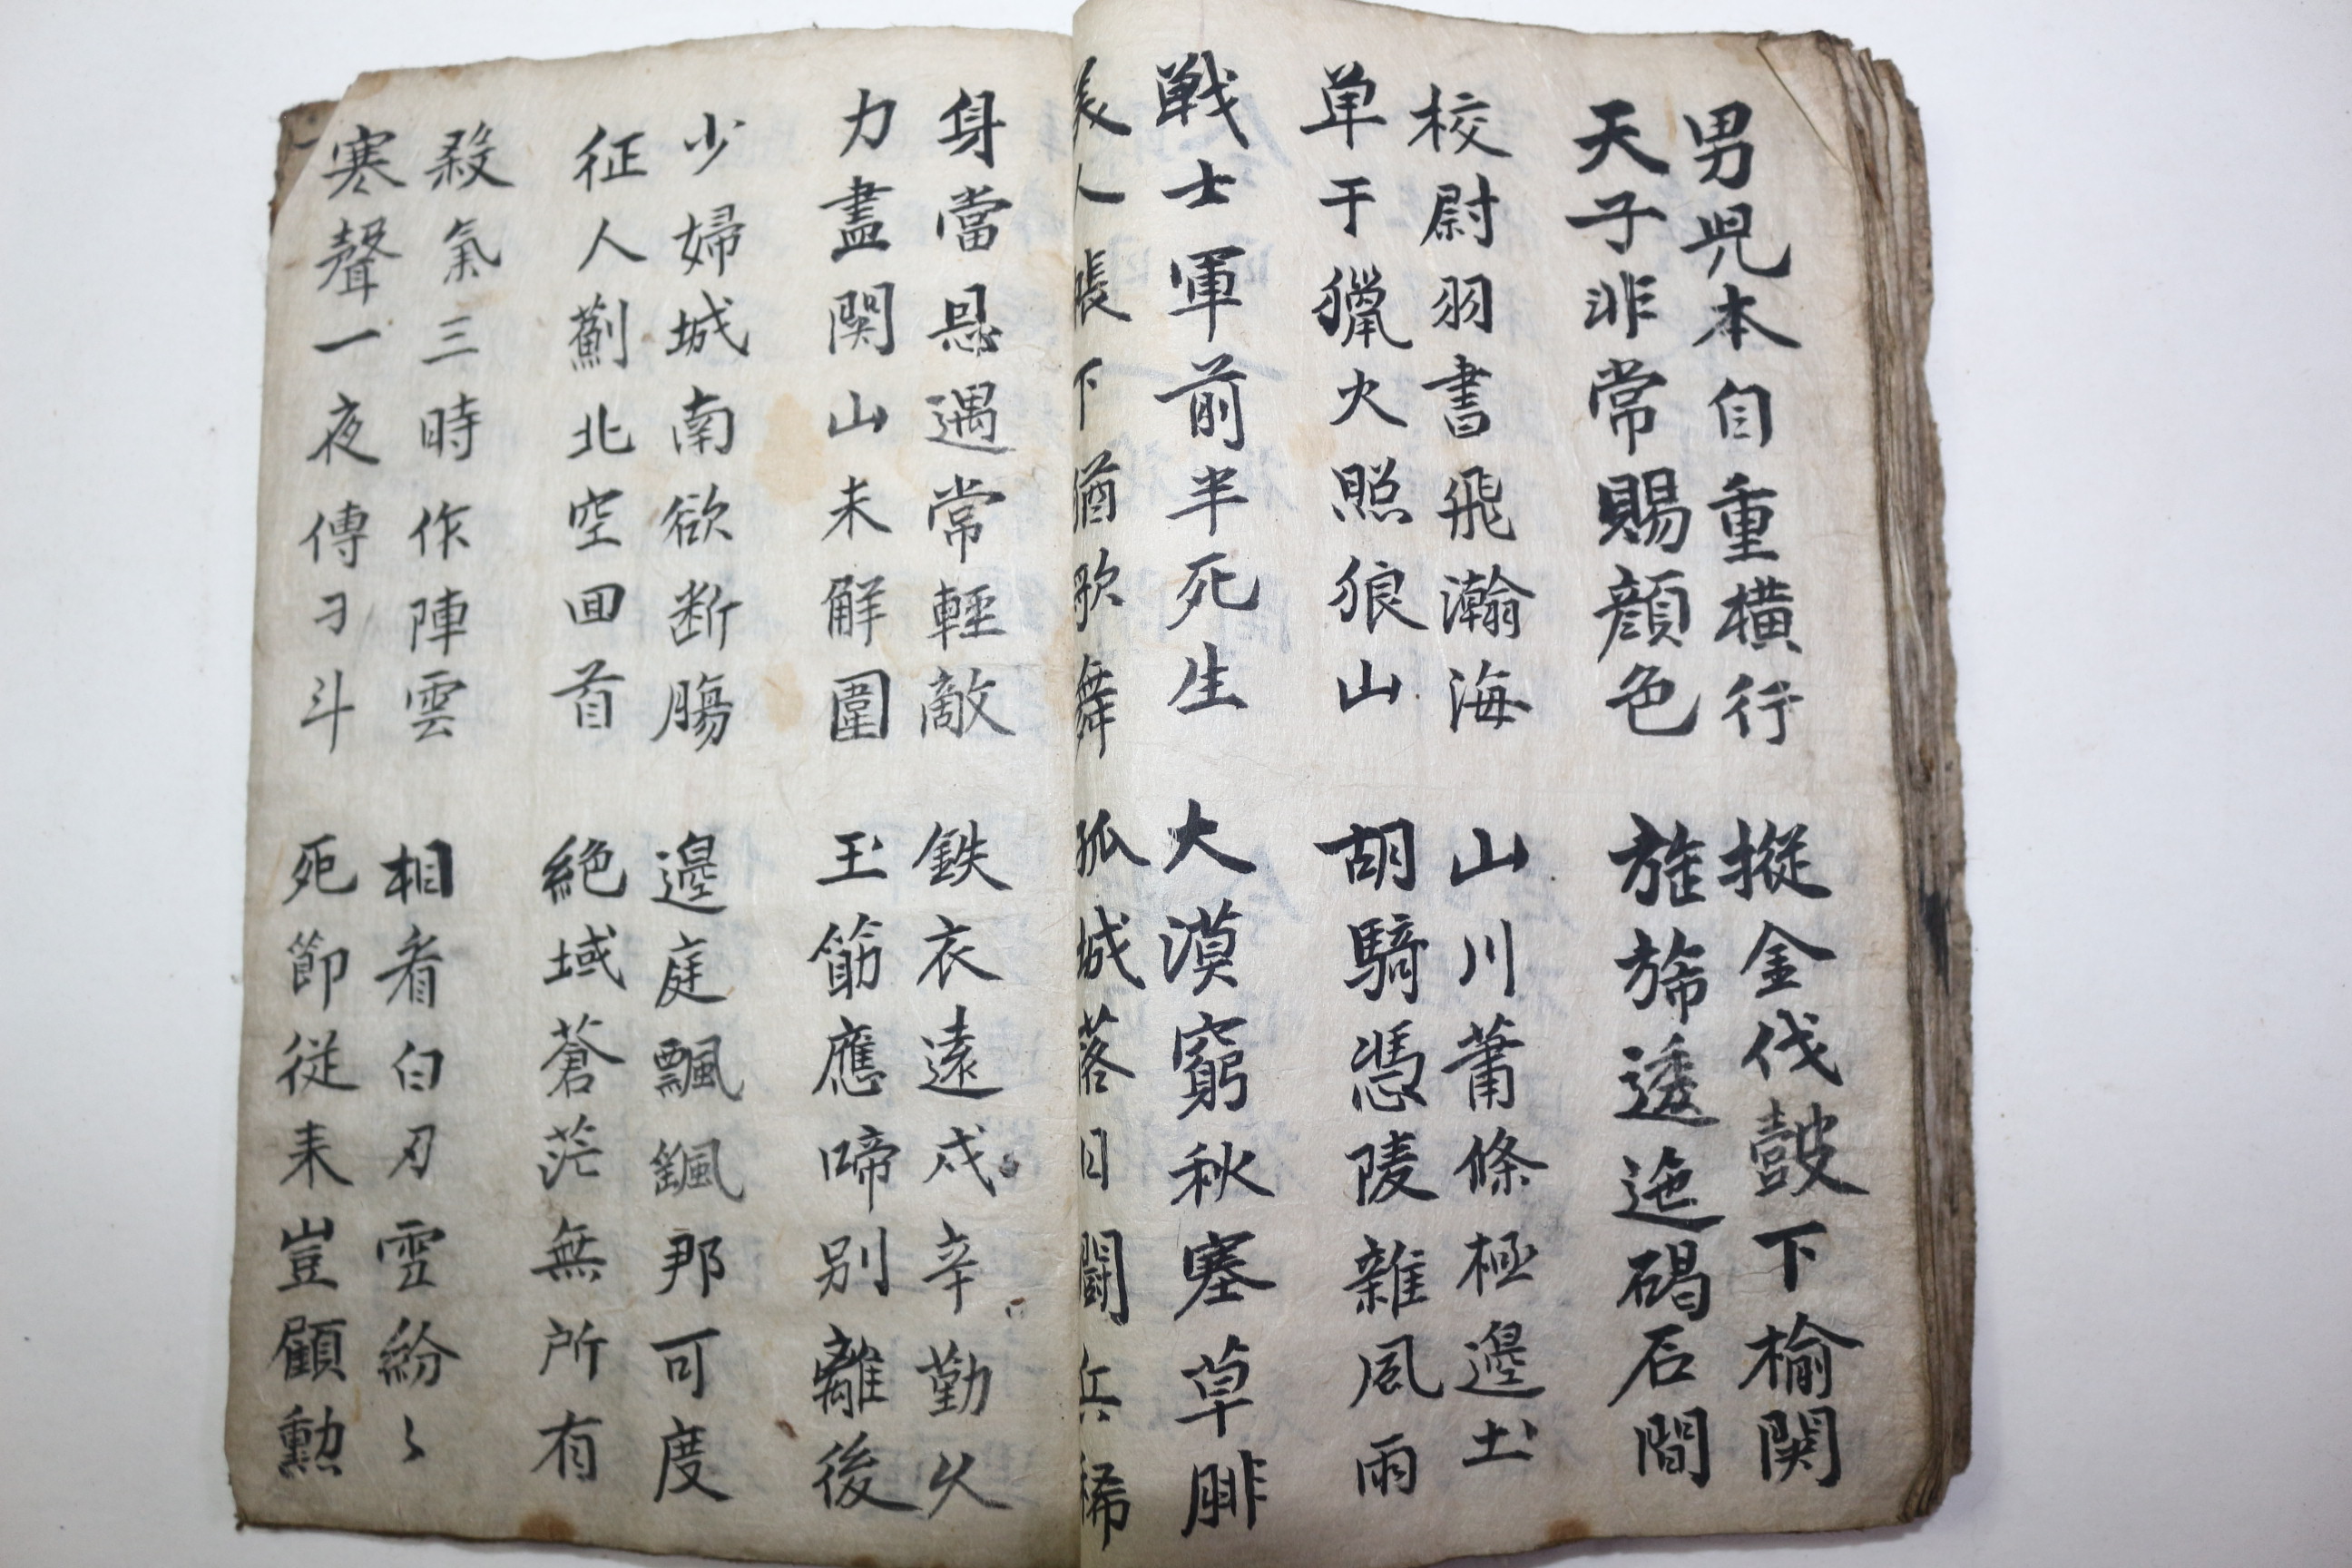 男兒本自重横行 摐金伐皷下榆関
天子非常賜顔色 旌旆逶迤碣石間
校尉羽書飛瀚海 山川蕭條極邊土
单于獵火照狼山 胡騎憑陵雜風雨
戦士軍前半死生 大漠窮秋塞草腓
美人帳下猶歌舞 孤城落日闘兵稀
身當恩遇常輕敵 鉄衣遠戍辛勤久
力盡関山未解圍 玉筯應啼別離後
少婦城南欲断腸 邊庭飄颻那可度
征人薊北空回首 絶域蒼茫無所有
殺氣三時作陣雲 相看白刃雪紛〻
寒聲一夜傳刁斗 死節従来豈顧勲